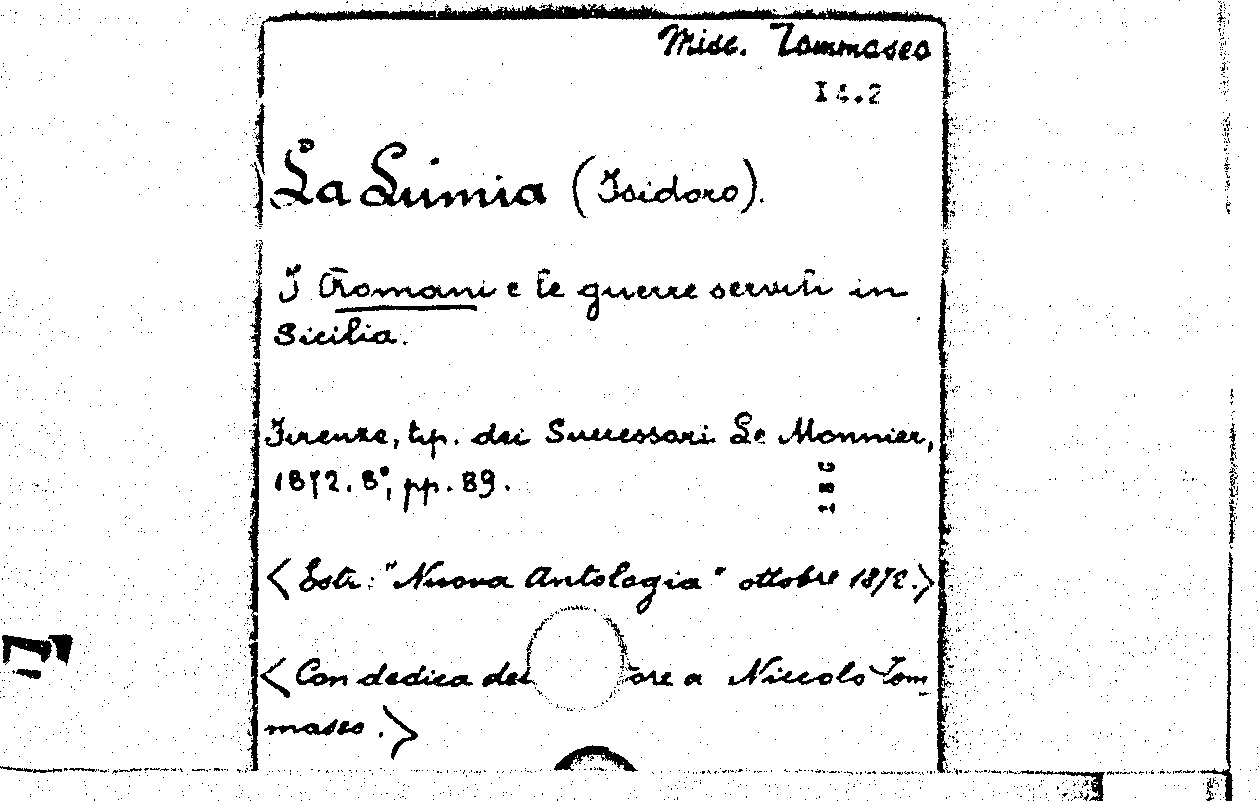 Misc. Tommaseo
14.2
La Lumia (Isidoro).
I Romani e le guerre servili in
Sicilia.
Firenze, tip. dei Successori Le Monnier,
1872. 8°, pp. 89.
<Estr.: "Nuova Antologia" ottobre 1872.>
<Con dedica de ore a Niccolo Tom
maseo.>